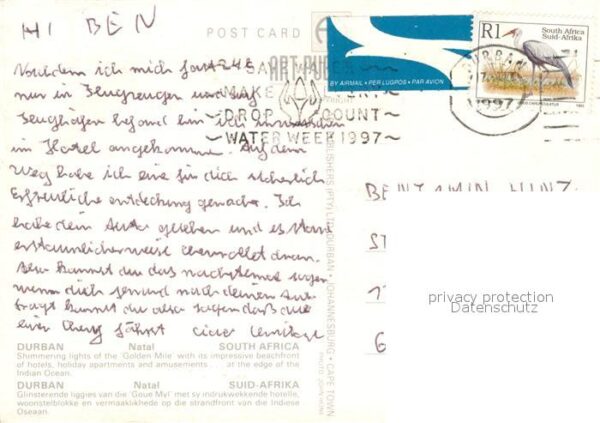 HI BEN
POST CARD
Nachdem ich mich fast 24 h
nur in Flugzeugen und
Flughäfen befand bin ich inzwischen
im Hotel angekommen. Auf dem
Weg habe ich eine für dich sicherlich
Erfreuliche entdeckung gemacht. Ich
habe dein Auto gesehen und es stand
erstaunlicherweise Chevrollet dran.
Also kannst du das nächstemal sagen
wenn dich jemand nach deinem Auto
fragt kannst du also sagen daß du
einen Chevy fährst ciao
BY AIRMAIL • PER LUGPOS • PAR AVION
R1 South Africa
Suid-Afrika
DURBAN
1997
SA
MAKE
DROP COUNT
WATER WEEK 1997
ART PUBLISHERS (PTY) LTD DURBAN • JOHANNESBURG • CAPE TOWN
BENJAMIN HINZ
privacy protection
Datenschutz
DURBAN Natal SOUTH AFRICA
Shimmering lights of the 'Golden Mile' with its impressive beachfront
of hotels, holiday apartments and amusements . . . at the edge of the
Indian Ocean.
DURBAN Natal SUID-AFRIKA
Glinsterende liggies van die 'Goue Myl' met sy indrukwekkende hotelle,
woonstelblokke en vermaaklikhede op die strandfront van die Indiese
Oseaan.